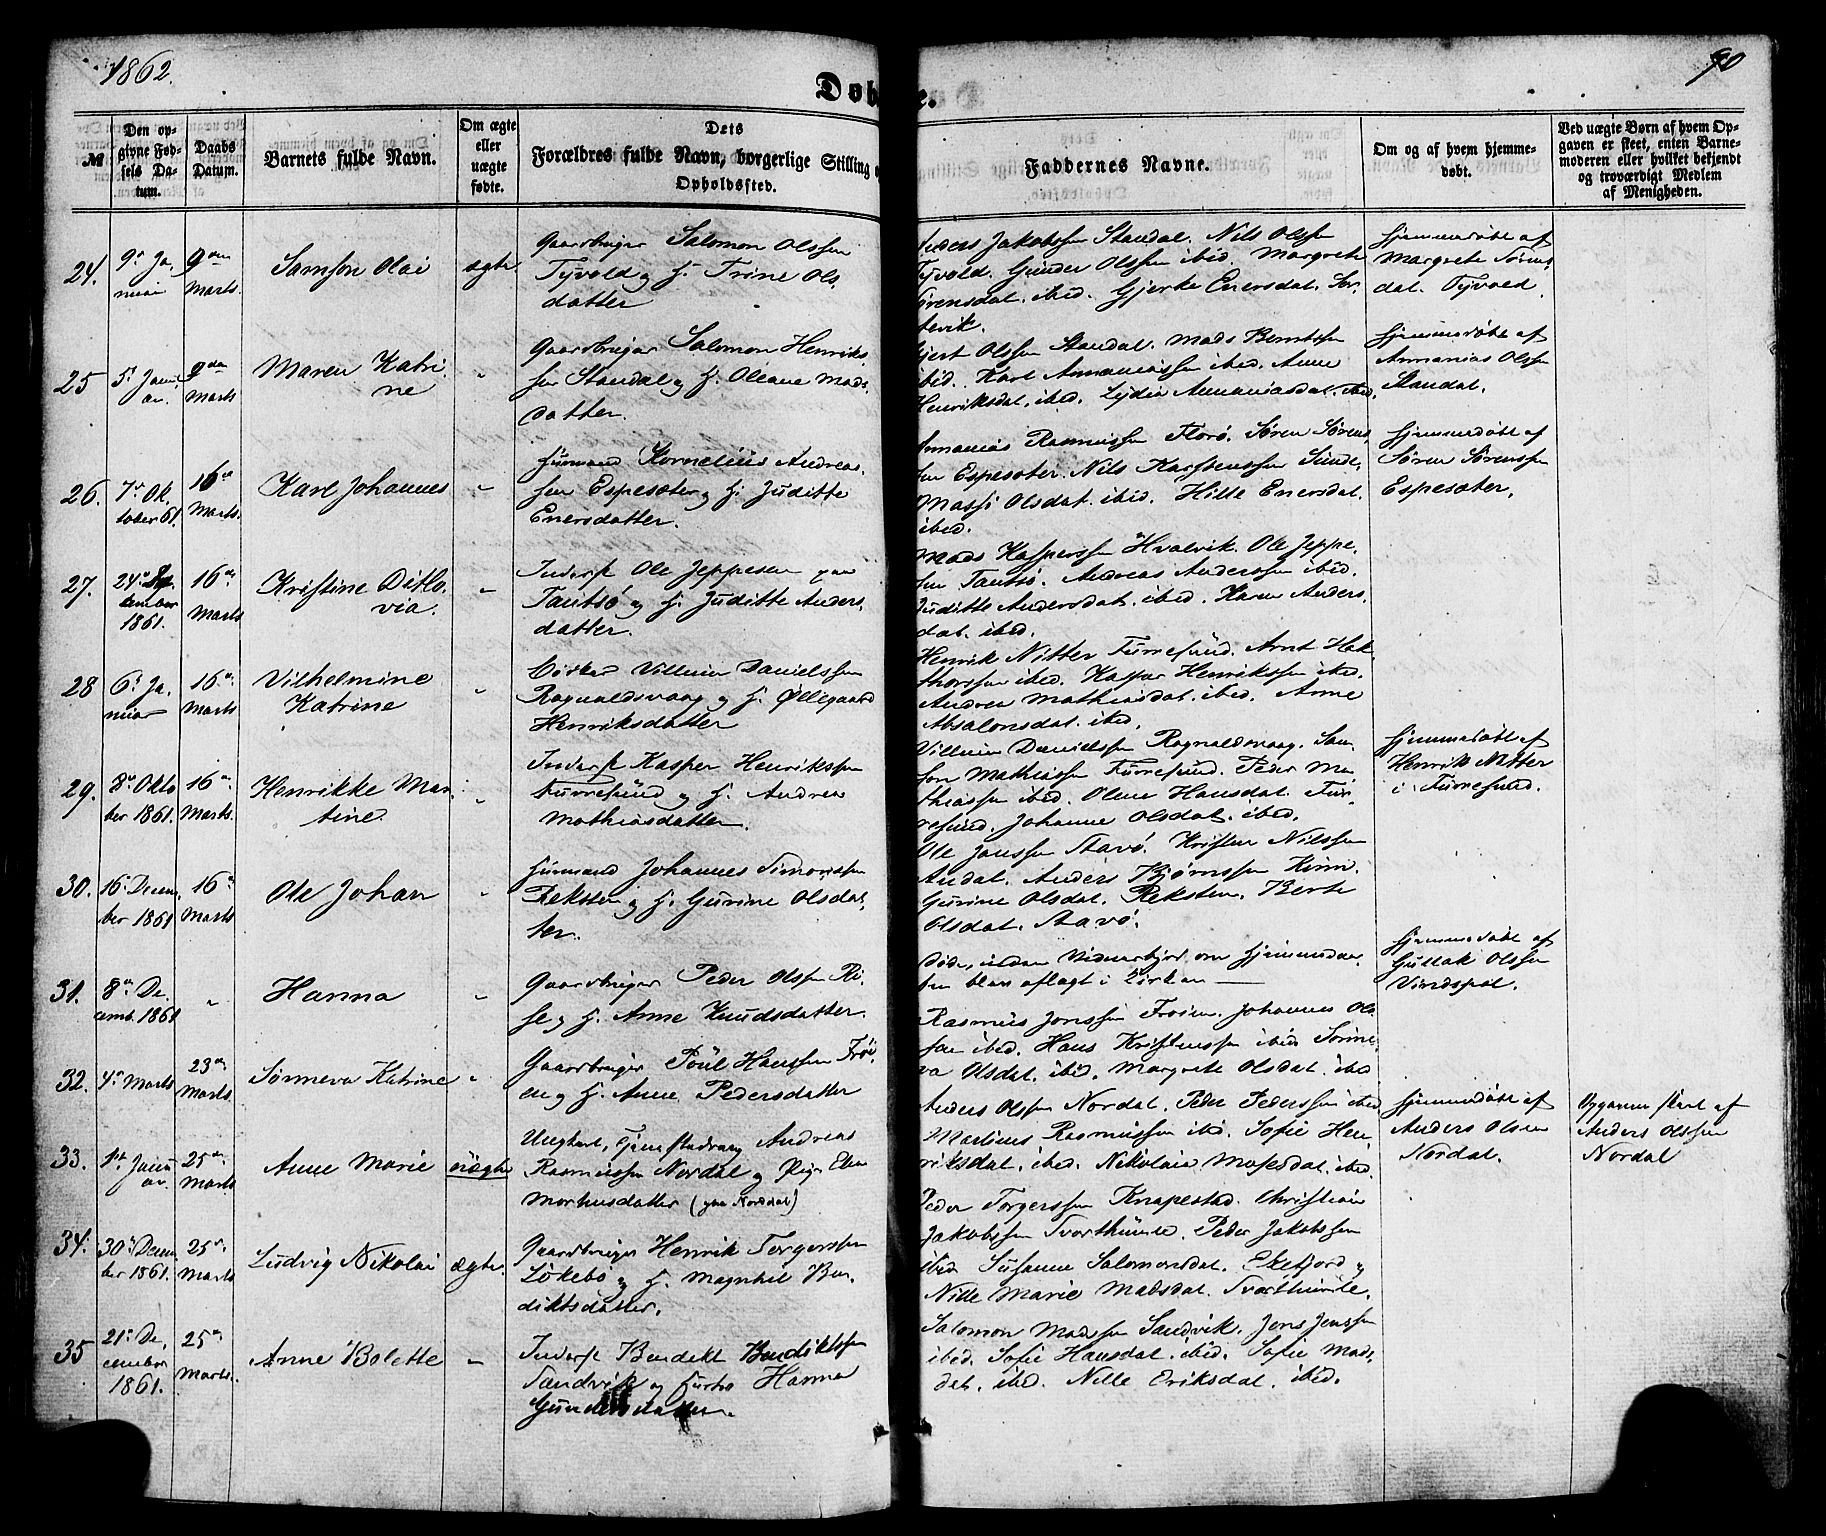 1862.
90
Døb
e.
№
Den op-
givne Fød-
sels Da-
tum.
Daabs
Datum.
Barnets fulde Navn.
Om ægte
eller
uægte
fødte.
Dets
Forældres fulde Navn, borgerlige Stilling o
Opholdssted.
Faddernes Navne.
Om og af hvem hjemme-
døbt.
Ved uægte Børn af hvem Op-
gaven er skeet, enten Barne-
moderen eller hvilket bekjendt
og troværdigt Medlem
af Menigheden.
24.
9de Ja
nuar
9den
Marts.
Samson Olai
ægte
Gaardbruger Salomon Olssen
Tyvold og H. Trine Ols
datter
Anders Jakobssen Standal. Nils Olssen
Tyvold. Gunder Olssen ibid. Margrete
Sørensdat. ibid. Gjerke Enersdat. Sør
Hjemmedøbt af
Margrete Sørens
dat. Tyvold.
25
5te Janu
ar.
9den
Marts
Maren Katri
ne
"
Gaardbruger Salomon Henriks
sen Standal og H. Oleane Mads
datter.
Gjert Olssen Standal. Mads Berntssen
ibid. Karl Annaniassen ibid. Anne
Henriksdat. ibid. Lydia Annaniasdat. ibid.
Hjemmedøbt af
Annanias Olssen
Standal.
26.
7de Ok
tober 61.
16de
Marts.
Karl Johannes
"
Huusmand Kornelius Andreas
sen Espesæter og H. Juditte
Enersdatter.
Annanias Rasmussen Florø. Søren Sørens
sen Espesæter. Nils Karstenssen Sunde
Massi Olsdat. ibid. Hille Enersdat.
ibid.
Hjemmedøbt af
Søren Sørenssen
Espesæter.
27.
24de Sep
tember
1861.
16de
Marts
Kristine Ditlo
via.
"
Inderst Ole Jeppesen paa
Tansø og H. Juditte Anders
datter.
Mads Kasperssen Hvalvik. Ole Jeppe
sen Tansø. Andreas Anderssen ibid.
Juditte Andersdat. ibid. Karen Anders
dat. ibid.
28
6te Ja
nuar
16de
Marts
Vilhelmine
Katrine
"
Villum Danielssen
Rognaldsvaag og H. Øllegaard
Henriksdatter
Henrik Nitter Furresund. Arnt Hak
thorssen ibid. Kaspar Henrikssen ibid.
Andrea Mathiasdat. ibid. Anne
Absalonsdat. ibid.
29.
8de Okto
ber 1861.
16de
Marts.
Henrikke Mar
tine
"
Inderst Kasper Henrikssen
Furresund og H. Andrea
Mathiasdatter.
Villum Danielssen Rognaldsvaag. Sam
son Mathiassen Furresund. Peder Ma
thiassen ibid. Oline Hansdat. Fur
resund. Johanne Olsdat. ibid.
Hjemmedøbt af
Henrik Nitter
i Furresund.
30.
16de Decem
ber 1861
16de
Marts
Ole Johan
"
Huusmand Johannes Simonssen
Reksten og H. Gurine Olsdat
ter.
Ole Janssen Stavø. Kristen Nilssen
Andal. Anders Bjørnssen Kinn.
Gurine Olsdat. Reksten. Berte
Olsdat. Stavø.
31.
8de De
cemb. 1861
"
Hanna
"
Gaardbruger Peder Olssen Ri
se og H. Anne Knudsdatter.
Døde, inden Vidnesbyrd om Hjemmedaa
ben blev aflagt i Kirken —
Hjemmedøbt af
Gullak Olssen
Vindspol.
32.
4de Marts
23de
Marts.
Sønneva Katrine
"
Gaardbruger Poul Hanssen Frøi
en og H. Anne Pedersdatter
Rasmus Jonssen Frøien. Johannes Ols
sen ibid. Hans Kristenssen ibid Sønne
va Olsdat. ibid. Margrete Olsdat. ibid
33.
1ste Janu
ar.
25de
Marts
Anne Marie
uægte
Ungkarl, Tjenestedreng Andreas
Rasmussen Nordal og Pige Elen
Morkusdatter (paa Norddal)
Anders Olssen Nordal. Peder Pederssen ibid
Martinus Rasmussen ibid. Sofie Hen
riksdat. ibid. Nikolaia Mosesdat. ibid.
Hjemmedøbt af
Anders Olsen
Nordal.
Opgaven skeet af
Anders Olssen
Nordal
34.
30te Decem
ber 1861.
25de
Marts
Ludvig Nikolai
ægte.
Gaardbruger Henrik Torgerssen
Løkebø og H. Magnhil Ben
diktsdatter.
Peder Torgerssen Knapestad. Christian
Jakobssen Svorthumle. Peder Jakobssen
ibid Susanne Salomonsdat. Eikefjord og
Nille Marie Madsdat. Svorthumle.
35
21de De
cember
1861.
25de
Marts.
Anne Bolette
"
Inderst Bendikt Bendiktssen
Sandvik og Hustro Hanna
Gundersdatter.
Salomon Madssen Sandvik. Jens Jenssen
ibid. Sofie Hansdat. ibid. Sofie Mads
dat. ibid. Nille Eriksdat. ibid.